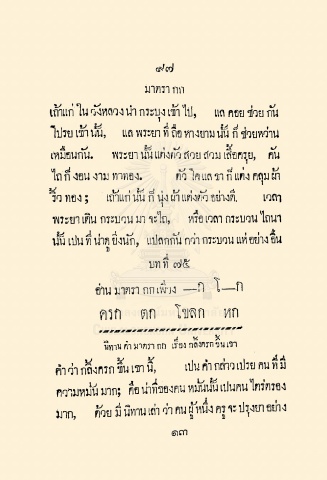 ๙๗
มาตรา กก
เถ้าแก่ ใน วังหลวง นำ กระบุง เข้า ไป, แล คอย ช่วย กัน
โปรย เข้า นั้น, แล พระยา ที่ ถือ หางยาม นั้น ก็ ช่วยหว่าน
เหมือนกัน. พระยา นั้น แต่งตัว สวย สวม เสื้อครุย, คัน
ไถ ก็ งอน งาม ทาทอง. ตัว โค แล ขา ก็ แต่ง คลุม ผ้า
ริ้ว ทอง; เถ้าแก่ นั้น ก็ นุ่ง ผ้า แต่งตัว อย่างดี. เวลา
พระยา เดิน กระบวน มา จะไถ, หรือ เวลา กระบวน ไถนา
นั้น เปน ที่ น่าดู ยิ่งนัก, แปลกกัน กว่า กระบวน แห่ อย่าง อื่น
บท ที่ ๗๕
อ่าน มาตรา กก เพียง —ก โ—ก
ครก ตก โขลก หก
นิทาน คำ มาตรา กก เรื่อง กลิ้งครก ขึ้น เขา
คำ ว่า กลิ้งครก ขึ้น เขา นี้, เปน คำ กล่าว เปรย คน ที่ มี
ความหมั่น มาก; คือ น่าที่ ของคน หมั่นนั้น เปนคน ไตร่ตรอง
มาก, ด้วย มี นิทาน เล่า ว่า คน ผู้ หนึ่ง ครู จะ ปรุงยา อย่าง
๑๓